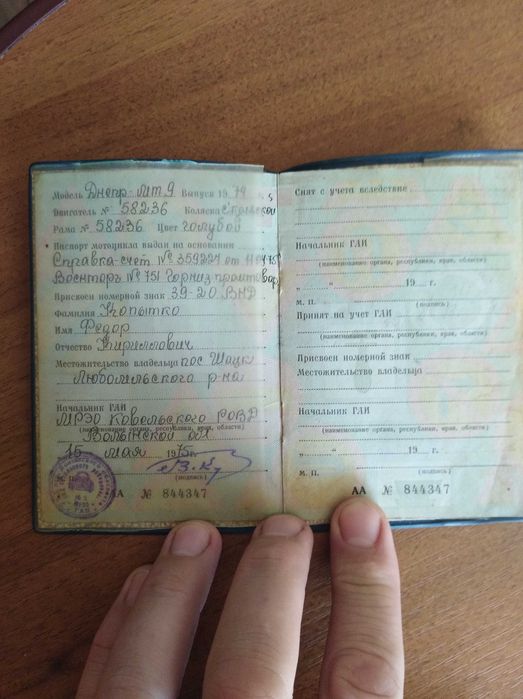 Модель Днепр-МТ9 Выпуск 1974 г.
Двигатель № 58236 Коляска с коляской
Рама № 58236 Цвет голубой
Паспорт мотоцикла выдан на основании
Справка-счет № 359221 от
Военторг № 751
Присвоен номерной знак 39-20 ВНД
Фамилия Копытко
Имя Федор
Отчество Кириллович
Местожительство владельца пос Шацк
Любомльского р-на
Начальник ГАИ
МРЭО Ковельского РОВД
(наименование органа, республики, края, области)
Волынской обл.
15 мая 1975 г.
М. П. (подпись)
АА № 844347
Снят с учета вследствие
Начальник ГАИ
(наименование органа, республики, края, области)
„ “ 19 г.
м. п. (подпись)
Принят на учет ГАИ
(наименование органа, республики, края, области)
Присвоен номерной знак
Местожительство владельца
Начальник ГАИ
(наименование органа, республики, края, области)
„ “ 19 г.
м. п. (подпись)
АА № 844347